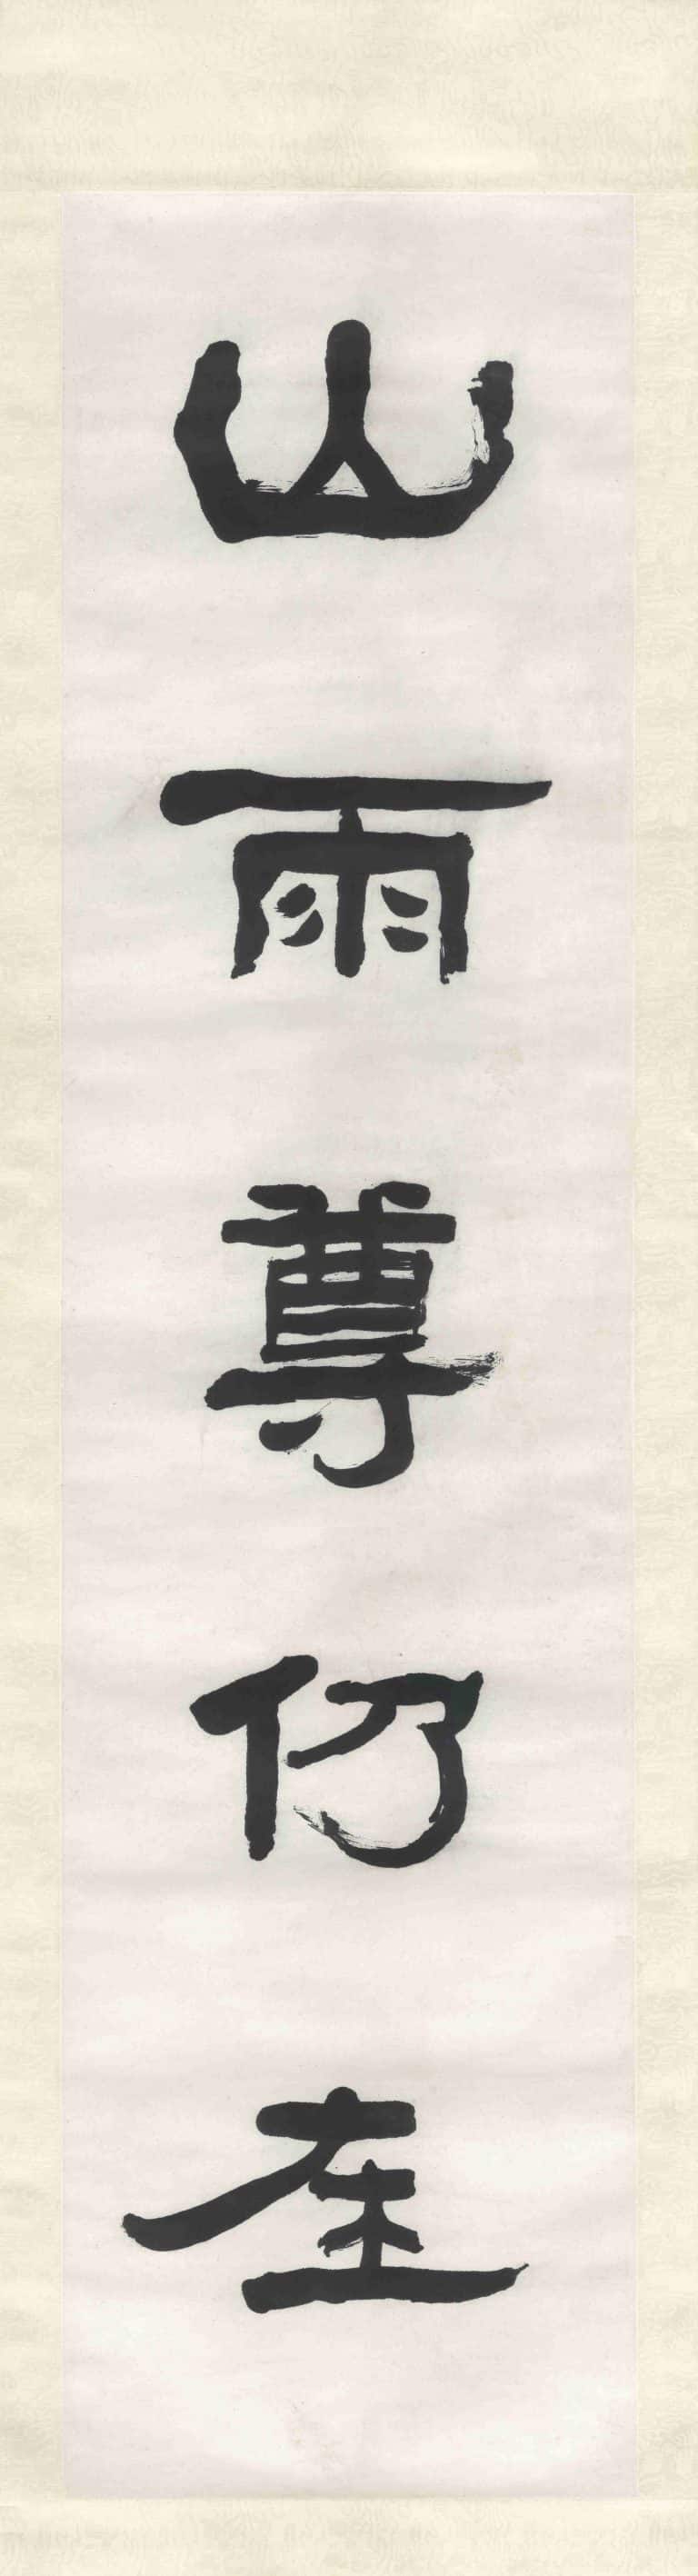 山雨尊仍在